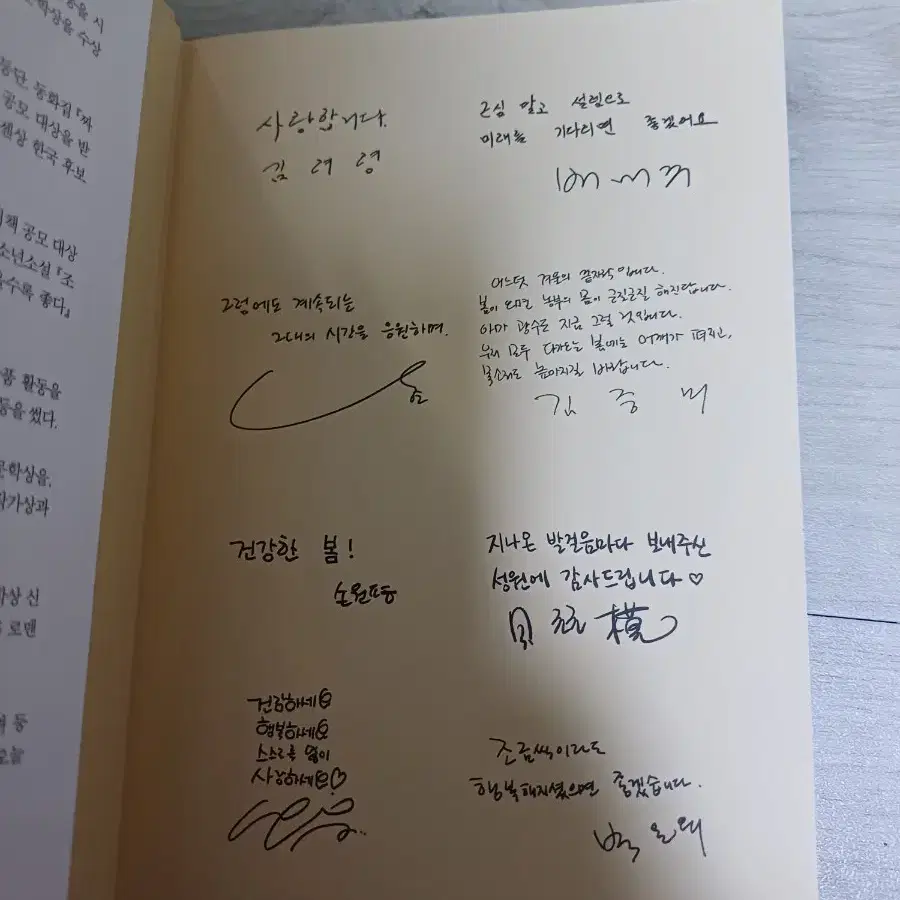 을 시
학상을 수상
등단. 동화집 『짜
공모 대상을 받
센상 한국 후보
책 공모 대상
소년소설 『조
수록 좋다』
품 활동을
등을 썼다.
문학상을,
작가상과
학상 신
로맨
등
오늘
사랑합니다.
김 려 령
근심 말고 설렘으로
미래를 기다리면 좋겠어요
그럼에도 계속되는
그대의 시간을 응원하며.
어느덧 겨울의 끝자락입니다.
봄이 되면 농부의 몸이 근질근질 해진답니다.
아마 광수도 지금 그럴 것입니다.
우리 모두 다가오는 봄에는 어깨가 펴지고,
목소리도 높아지길 바랍니다.
김 중 미
건강한 봄!
손원평
지나온 발걸음마다 보내주신
성원에 감사드립니다♡
건강하세요
행복하세요
스스로를 많이
사랑하세요♡
조금씩이라도
행복해지셨으면 좋겠습니다.